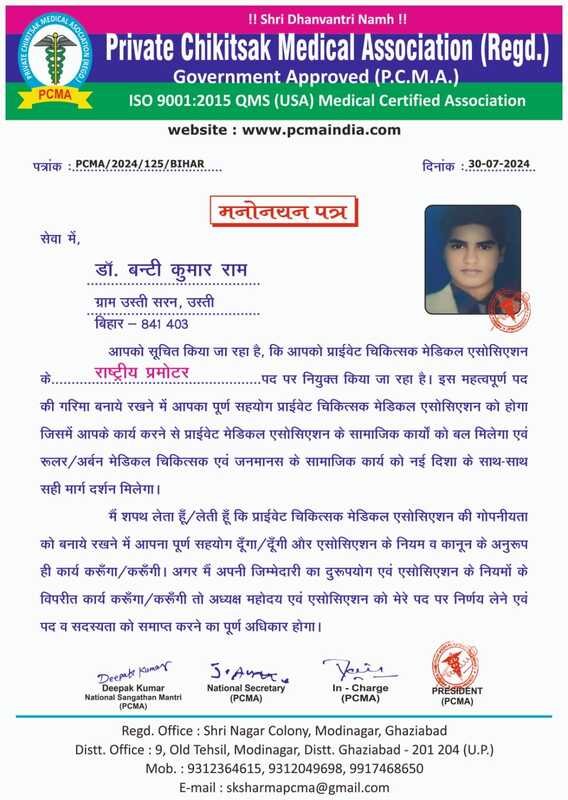 !! Shri Dhanvantri Namh !!
Private Chikitsak Medical Association (Regd.)
Government Approved (P.C.M.A.)
ISO 9001:2015 QMS (USA) Medical Certified Association
PRIVATE CHIKITSAK MEDICAL ASSOCIATION (REGD.)
PCMA
website : www.pcmaindia.com
पत्रांक :PCMA/2024/125/BIHAR
दिनांक :30-07-2024
मनोनयन पत्र
सेवा में,
डॉ. बन्टी कुमार राम
ग्राम उस्ती सरन, उस्ती
बिहार – 841 403
आपको सूचित किया जा रहा है, कि आपको प्राईवेट चिकित्सक मेडिकल एसोसिएशन
के राष्ट्रीय प्रमोटर पद पर नियुक्त किया जा रहा है। इस महत्वपूर्ण पद
की गरिमा बनाये रखने में आपका पूर्ण सहयोग प्राईवेट चिकित्सक मेडिकल एसोसिएशन को होगा
जिसमें आपके कार्य करने से प्राईवेट मेडिकल एसोसिएशन के सामाजिक कार्यो को बल मिलेगा एवं
रूलर/अर्बन मेडिकल चिकित्सक एवं जनमानस के सामाजिक कार्य को नई दिशा के साथ-साथ
सही मार्ग दर्शन मिलेगा।
मैं शपथ लेता हूँ/लेती हूँ कि प्राईवेट चिकित्सक मेडिकल एसोसिएशन की गोपनीयता
को बनाये रखने में आपना पूर्ण सहयोग दूँगा/दूँगी और एसोसिएशन के नियम व कानून के अनुरूप
ही कार्य करूँगा/करूँगी। अगर मैं अपनी जिम्मेदारी का दुरूपयोग एवं एसोसिएशन के नियमों के
विपरीत कार्य करूँगा/करूँगी तो अध्यक्ष महोदय एवं एसोसिएशन को मेरे पद पर निर्णय लेने एवं
पद व सदस्यता को समाप्त करने का पूर्ण अधिकार होगा।
Deepak Kumar
Deepak Kumar
National Sangathan Mantri
(PCMA)
National Secretary
(PCMA)
In - Charge
(PCMA)
PRESIDENT
(PCMA)
Regd. Office : Shri Nagar Colony, Modinagar, Ghaziabad
Distt. Office : 9, Old Tehsil, Modinagar, Distt. Ghaziabad - 201 204 (U.P.)
Mob. : 9312364615, 9312049698, 9917468650
E-mail : sksharmapcma@gmail.com